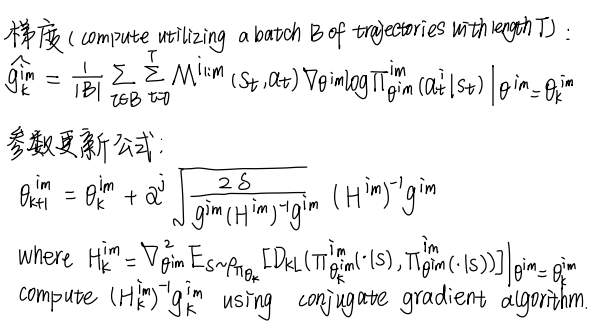 梯度 (compute utilizing a batch B of trajectories with length T) :
ĝ_k^{im} = 1/|B| Σ_{τ∈B} Σ_{t=0}^{T} M^{i1:m} (s_t, a_t) ∇_{θ^{im}} log π_{θ^{im}}^{im} (a_t^i | s_t) |_{θ^{im} = θ_k^{im}}
参数更新公式:
θ_{k+1}^{im} = θ_k^{im} + α^j √(2δ / (g^{im} (H^{im})^{-1} g^{im})) (H^{im})^{-1} g^{im}
where H_k^{im} = ∇²_{θ^{im}} E_{s~ρ_{π_{θ_k}}} [D_{KL} (π_{θ_k^{im}}^{im} (·|s), π_{θ^{im}}^{im} (·|s))] |_{θ^{im} = θ_k^{im}}
compute (H_k^{im})^{-1} g_k^{im} using conjugate gradient algorithm.